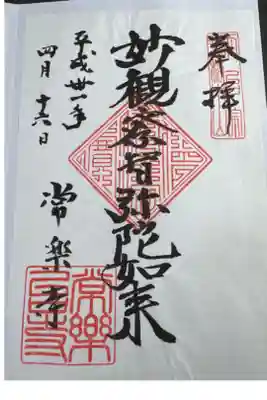 奉拝
妙観察智弥陀如来
平成卅一年
四月十六日
常楽寺
常樂
寺